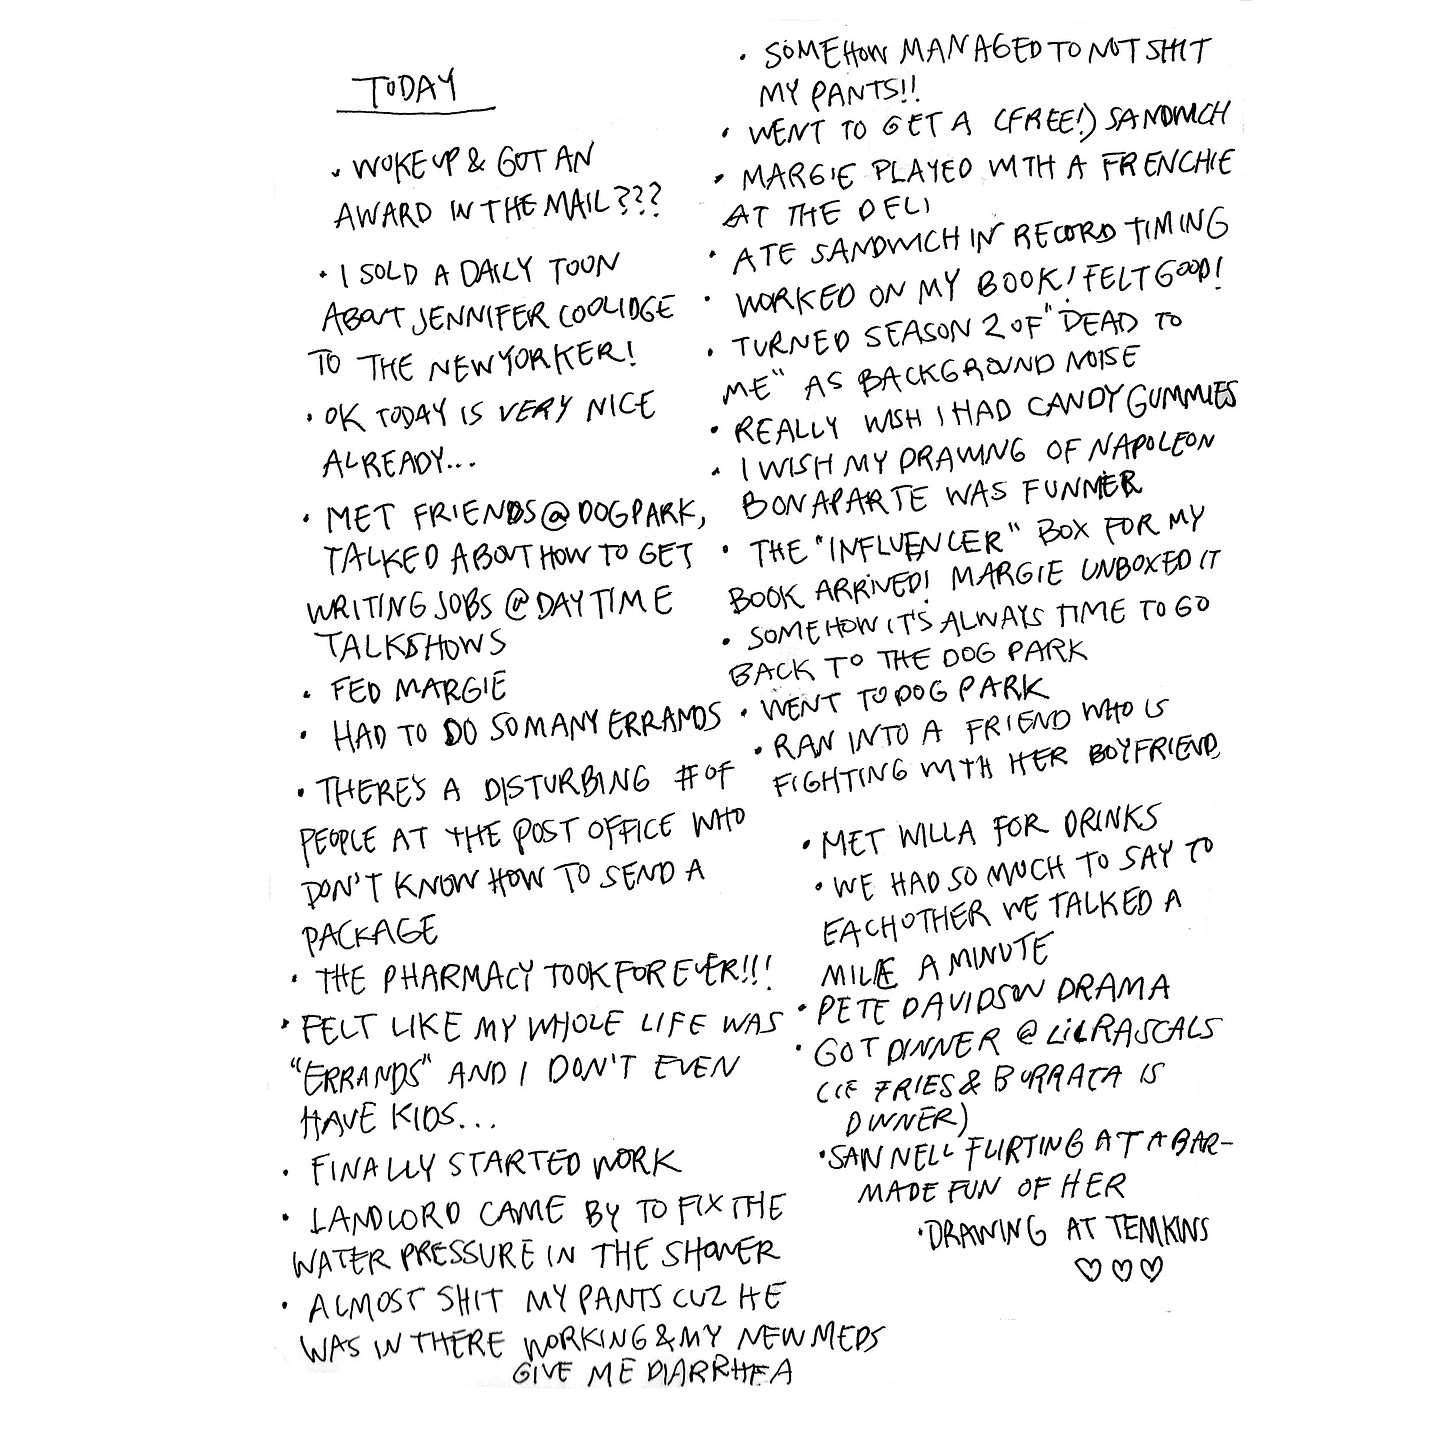 TODAY
• WOKE UP & GOT AN
AWARD IN THE MAIL???
• I SOLD A DAILY TOON
ABOUT JENNIFER COOLIDGE
TO THE NEW YORKER!
• OK TODAY IS VERY NICE
ALREADY...
• MET FRIENDS @ DOG PARK,
TALKED ABOUT HOW TO GET
WRITING JOBS @ DAYTIME
TALKSHOWS
• FED MARGIE
• HAD TO DO SO MANY ERRANDS
• THERE'S A DISTURBING # OF
PEOPLE AT THE POST OFFICE WHO
DON'T KNOW HOW TO SEND A
PACKAGE
• THE PHARMACY TOOK FOREVER!!!
• FELT LIKE MY WHOLE LIFE WAS
"ERRANDS" AND I DON'T EVEN
HAVE KIDS...
• FINALLY STARTED WORK
• LANDLORD CAME BY TO FIX THE
WATER PRESSURE IN THE SHOWER
• ALMOST SHIT MY PANTS CUZ HE
WAS IN THERE WORKING & MY NEW MEDS
GIVE ME DIARRHEA
• SOMEHOW MANAGED TO NOT SHIT
MY PANTS!!
• WENT TO GET A (FREE!) SANDWICH
• MARGIE PLAYED WITH A FRENCHIE
AT THE DELI
• ATE SANDWICH IN RECORD TIMING
• WORKED ON MY BOOK! FELT GOOD!
• TURNED SEASON 2 OF "DEAD TO
ME" AS BACKGROUND NOISE
• REALLY WISH I HAD CANDY GUMMIES
• I WISH MY DRAWING OF NAPOLEON
BONAPARTE WAS FUNNIER
• THE "INFLUENCER" BOX FOR MY
BOOK ARRIVED! MARGIE UNBOXED IT
• SOMEHOW IT'S ALWAYS TIME TO GO
BACK TO THE DOG PARK
• WENT TO DOG PARK
• RAN INTO A FRIEND WHO IS
FIGHTING WITH HER BOYFRIEND
• MET WILLA FOR DRINKS
• WE HAD SO MUCH TO SAY TO
EACHOTHER WE TALKED A
MILE A MINUTE
• PETE DAVIDSON DRAMA
• GOT DINNER @ LIL RASCALS
(IF FRIES & BURRATA IS
DINNER)
• SAW NELL FLIRTING AT A BAR-
MADE FUN OF HER
• DRAWING AT TEMKINS
♡♡♡